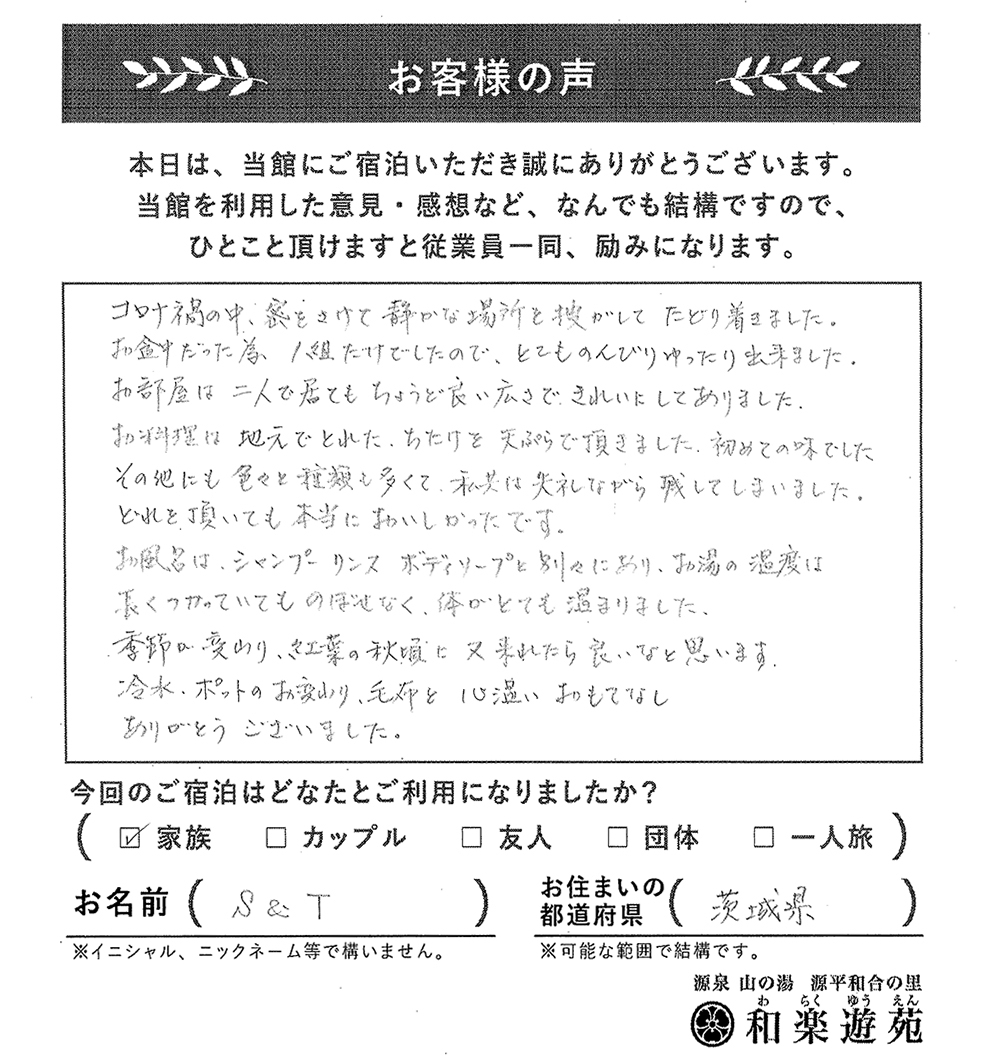 お客様の声
本日は、当館にご宿泊いただき誠にありがとうございます。
当館を利用した意見・感想など、なんでも結構ですので、
ひとこと頂けますと従業員一同、励みになります。
コロナ禍の中、密をさけて 静かな場所を捜がして たどり着きました。
お盆中だった為、1組だけでしたので、とてものんびりゆったり出来ました。
お部屋は 二人で居ても ちょうど良い広さで、きれいにしてありました。
お料理は 地元でとれた、ちたけを 天ぷらで頂きました。初めての味でした
その他にも 色々と種類も多くて、私共は 失礼ながら 残してしまいました。
どれを頂いても 本当に おいしかったです。
お風呂は、シャンプー リンス ボディソープと別々にあり、お湯の温度は
長くつかっていても のぼせなく、体がとても温まりました。
季節が変わり、紅葉の秋頃に 又来れたら 良いなと思います。
冷水、ポットのお変わり、毛布と 心温い おもてなし
ありがとう ございました。
今回のご宿泊はどなたとご利用になりましたか?
( ☑ 家族 □ カップル □ 友人 □ 団体 □ 一人旅 )
お名前 ( S & T )
お住まいの都道府県 ( 茨城県 )
※イニシャル、ニックネーム等で構いません。
※可能な範囲で結構です。
源泉 山の湯 源平和合の里
わ らく ゆう えん
和楽遊苑